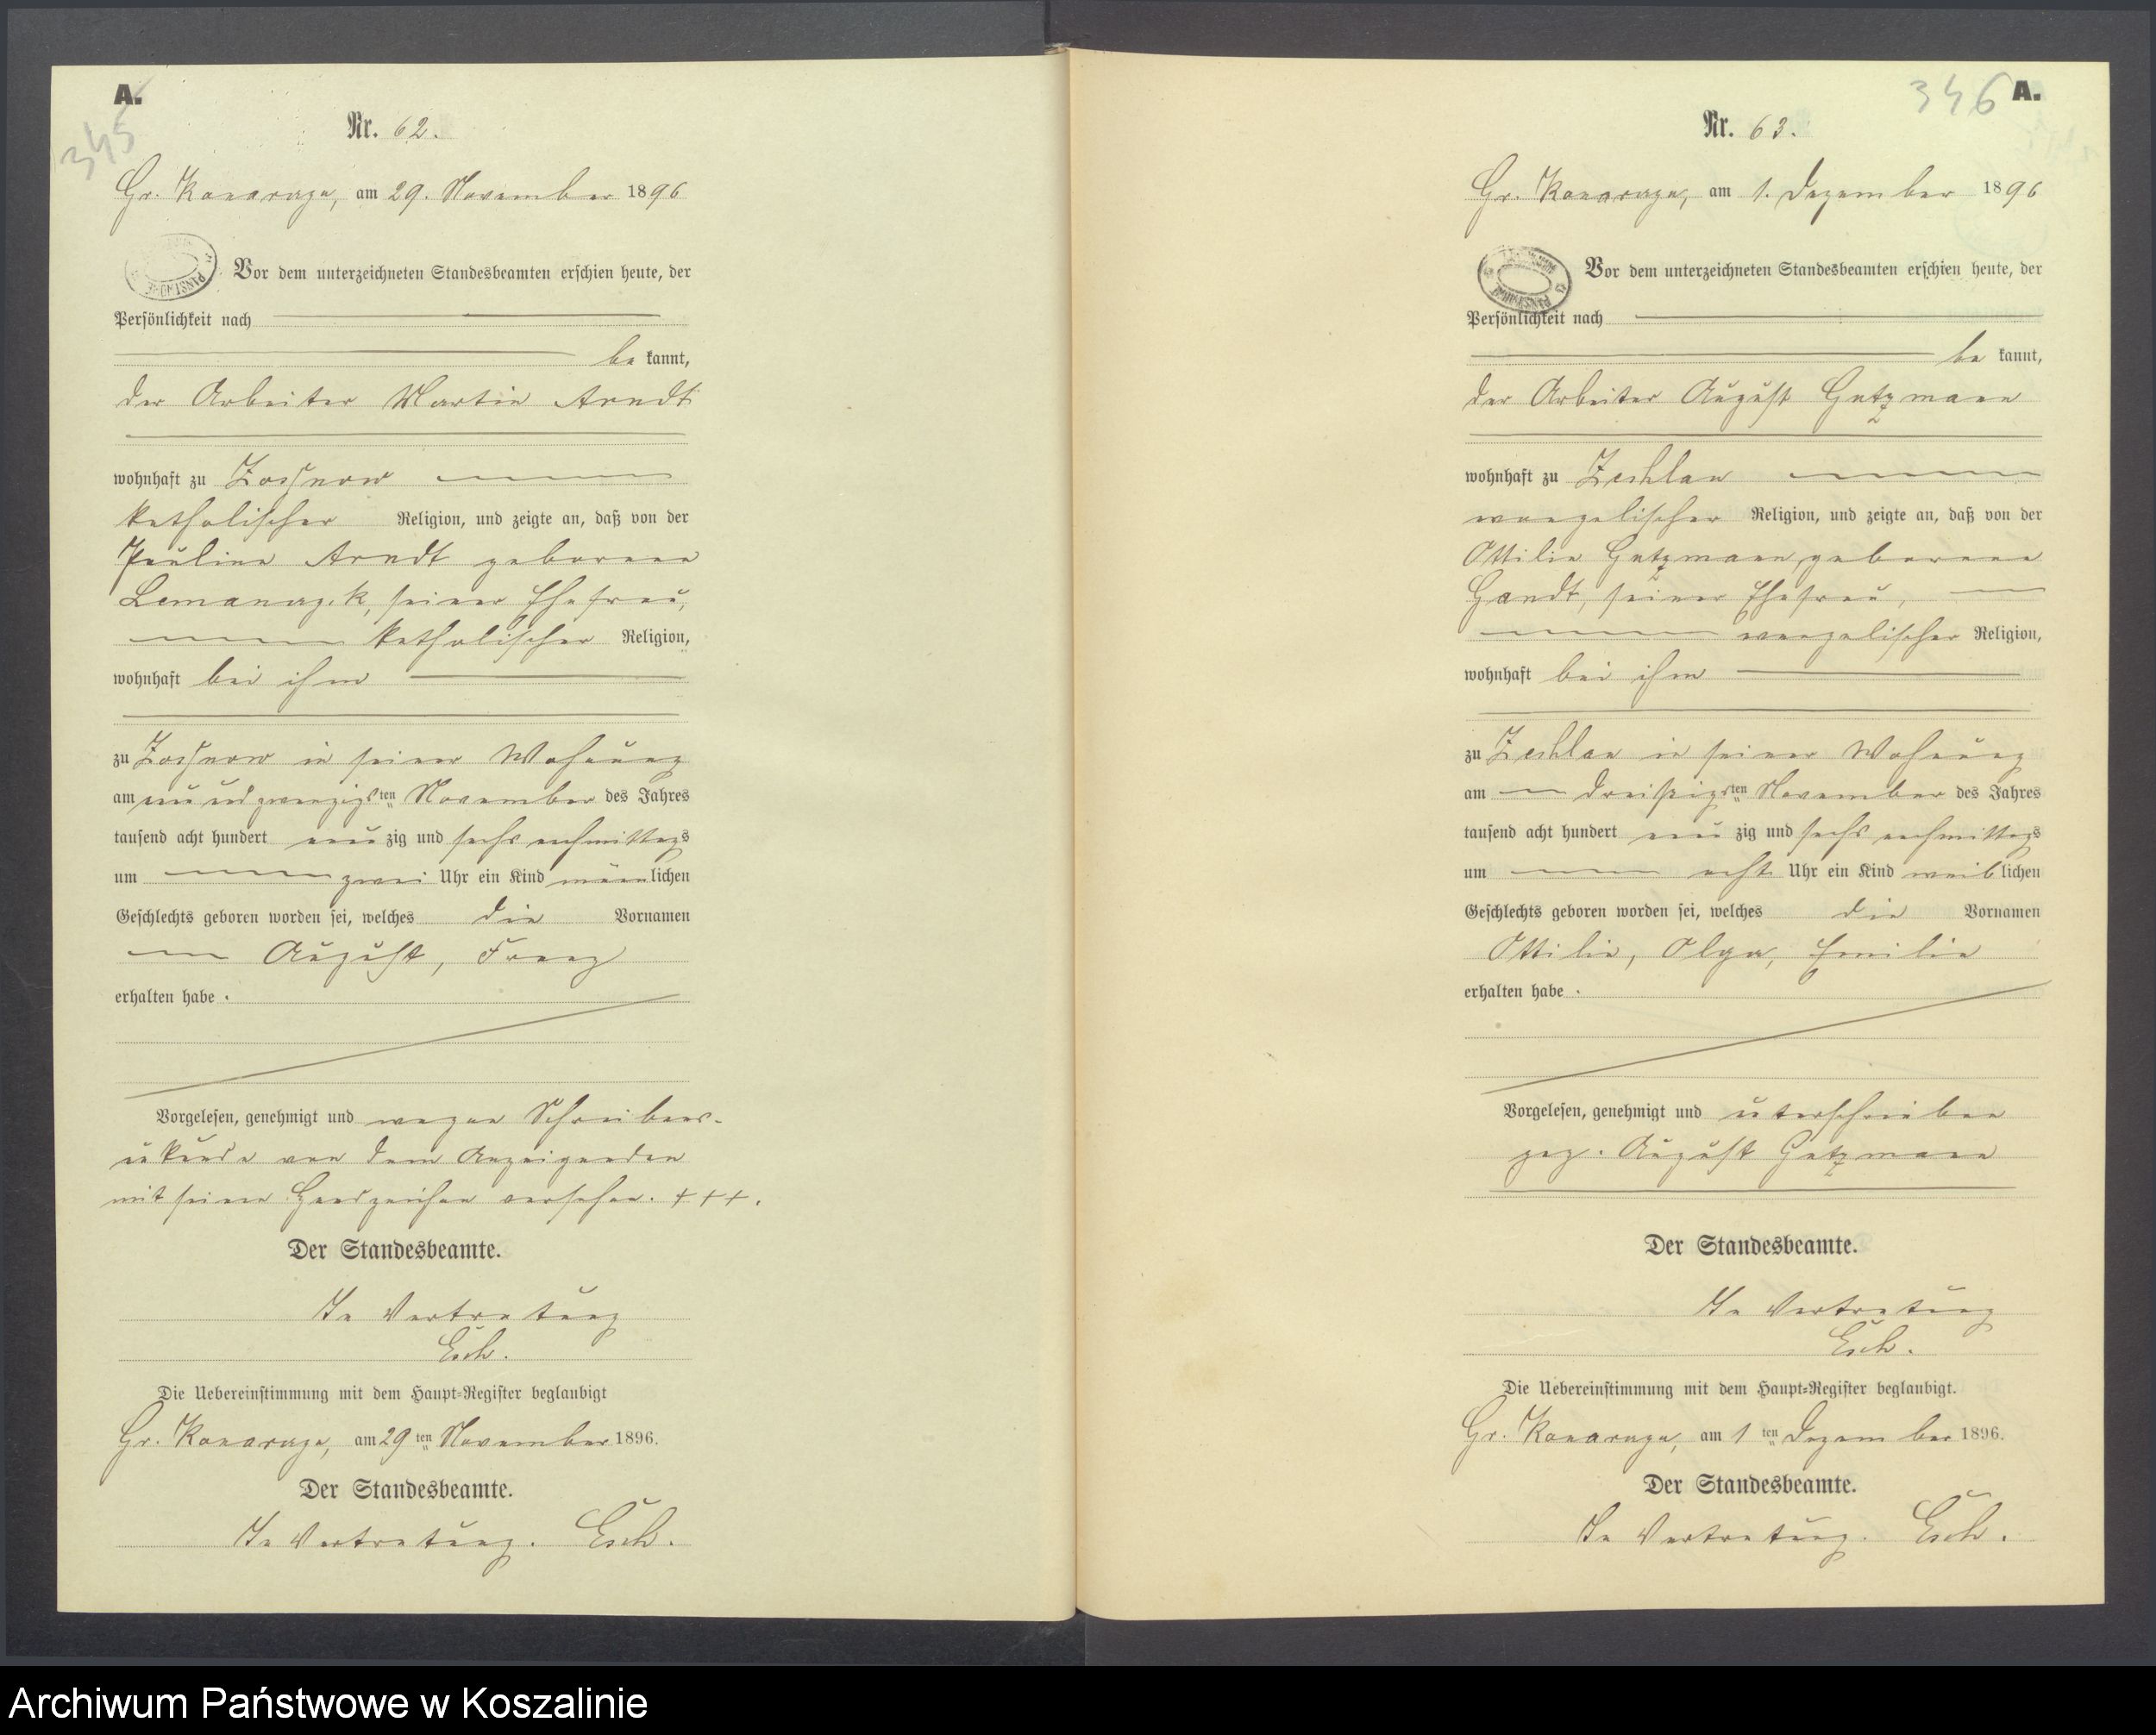 A.
345
Nr. 62.
Gr. Konarczyn, am 29. November 1896
Vor dem unterzeichneten Standesbeamten erschien heute, der
Persönlichkeit nach
be kannt,
der Arbeiter Martin Arndt
wohnhaft zu Zossnow
katholischer Religion, und zeigte an, daß von der
Pauline Arndt geborenen
seiner Ehefrau,
katholischer Religion,
wohnhaft bei ihm
zu Zossnow in seiner Wohnung
am neunundzwanzigsten November des Jahres
tausend acht hundert neunzig und sechs nachmittags
um zwei Uhr ein Kind männlichen
Geschlechts geboren worden sei, welches die Vornamen
August, Franz
erhalten habe.
Vorgelesen, genehmigt und wegen Schreibens-
unkunde von dem Anzeigenden
mit seinem Handzeichen versehen. + + +.
Der Standesbeamte.
In Vertretung
Esch.
Die Uebereinstimmung mit dem Haupt-Register beglaubigt
Gr. Konarczyn, am 29ten November 1896.
Der Standesbeamte.
In Vertretung. Esch.
346 A.
Nr. 63.
Gr. Konarczyn, am 1. Dezember 1896
Vor dem unterzeichneten Standesbeamten erschien heute, der
Persönlichkeit nach
be kannt,
der Arbeiter August Gutzmann
wohnhaft zu Zechlau
evangelischer Religion, und zeigte an, daß von der
Ottilie Gutzmann, geborenen
Gandt, seiner Ehefrau,
evangelischer Religion,
wohnhaft bei ihm
zu Zechlau in seiner Wohnung
am dreißigsten November des Jahres
tausend acht hundert neunzig und sechs nachmittags
um acht Uhr ein Kind weiblichen
Geschlechts geboren worden sei, welches die Vornamen
Ottilie, Olga, Emilie
erhalten habe.
Vorgelesen, genehmigt und unterschrieben
gez. August Gutzmann
Der Standesbeamte.
In Vertretung
Esch.
Die Uebereinstimmung mit dem Haupt-Register beglaubigt.
Gr. Konarczyn, am 1ten Dezember 1896.
Der Standesbeamte.
In Vertretung. Esch.
Archiwum Państwowe w Koszalinie